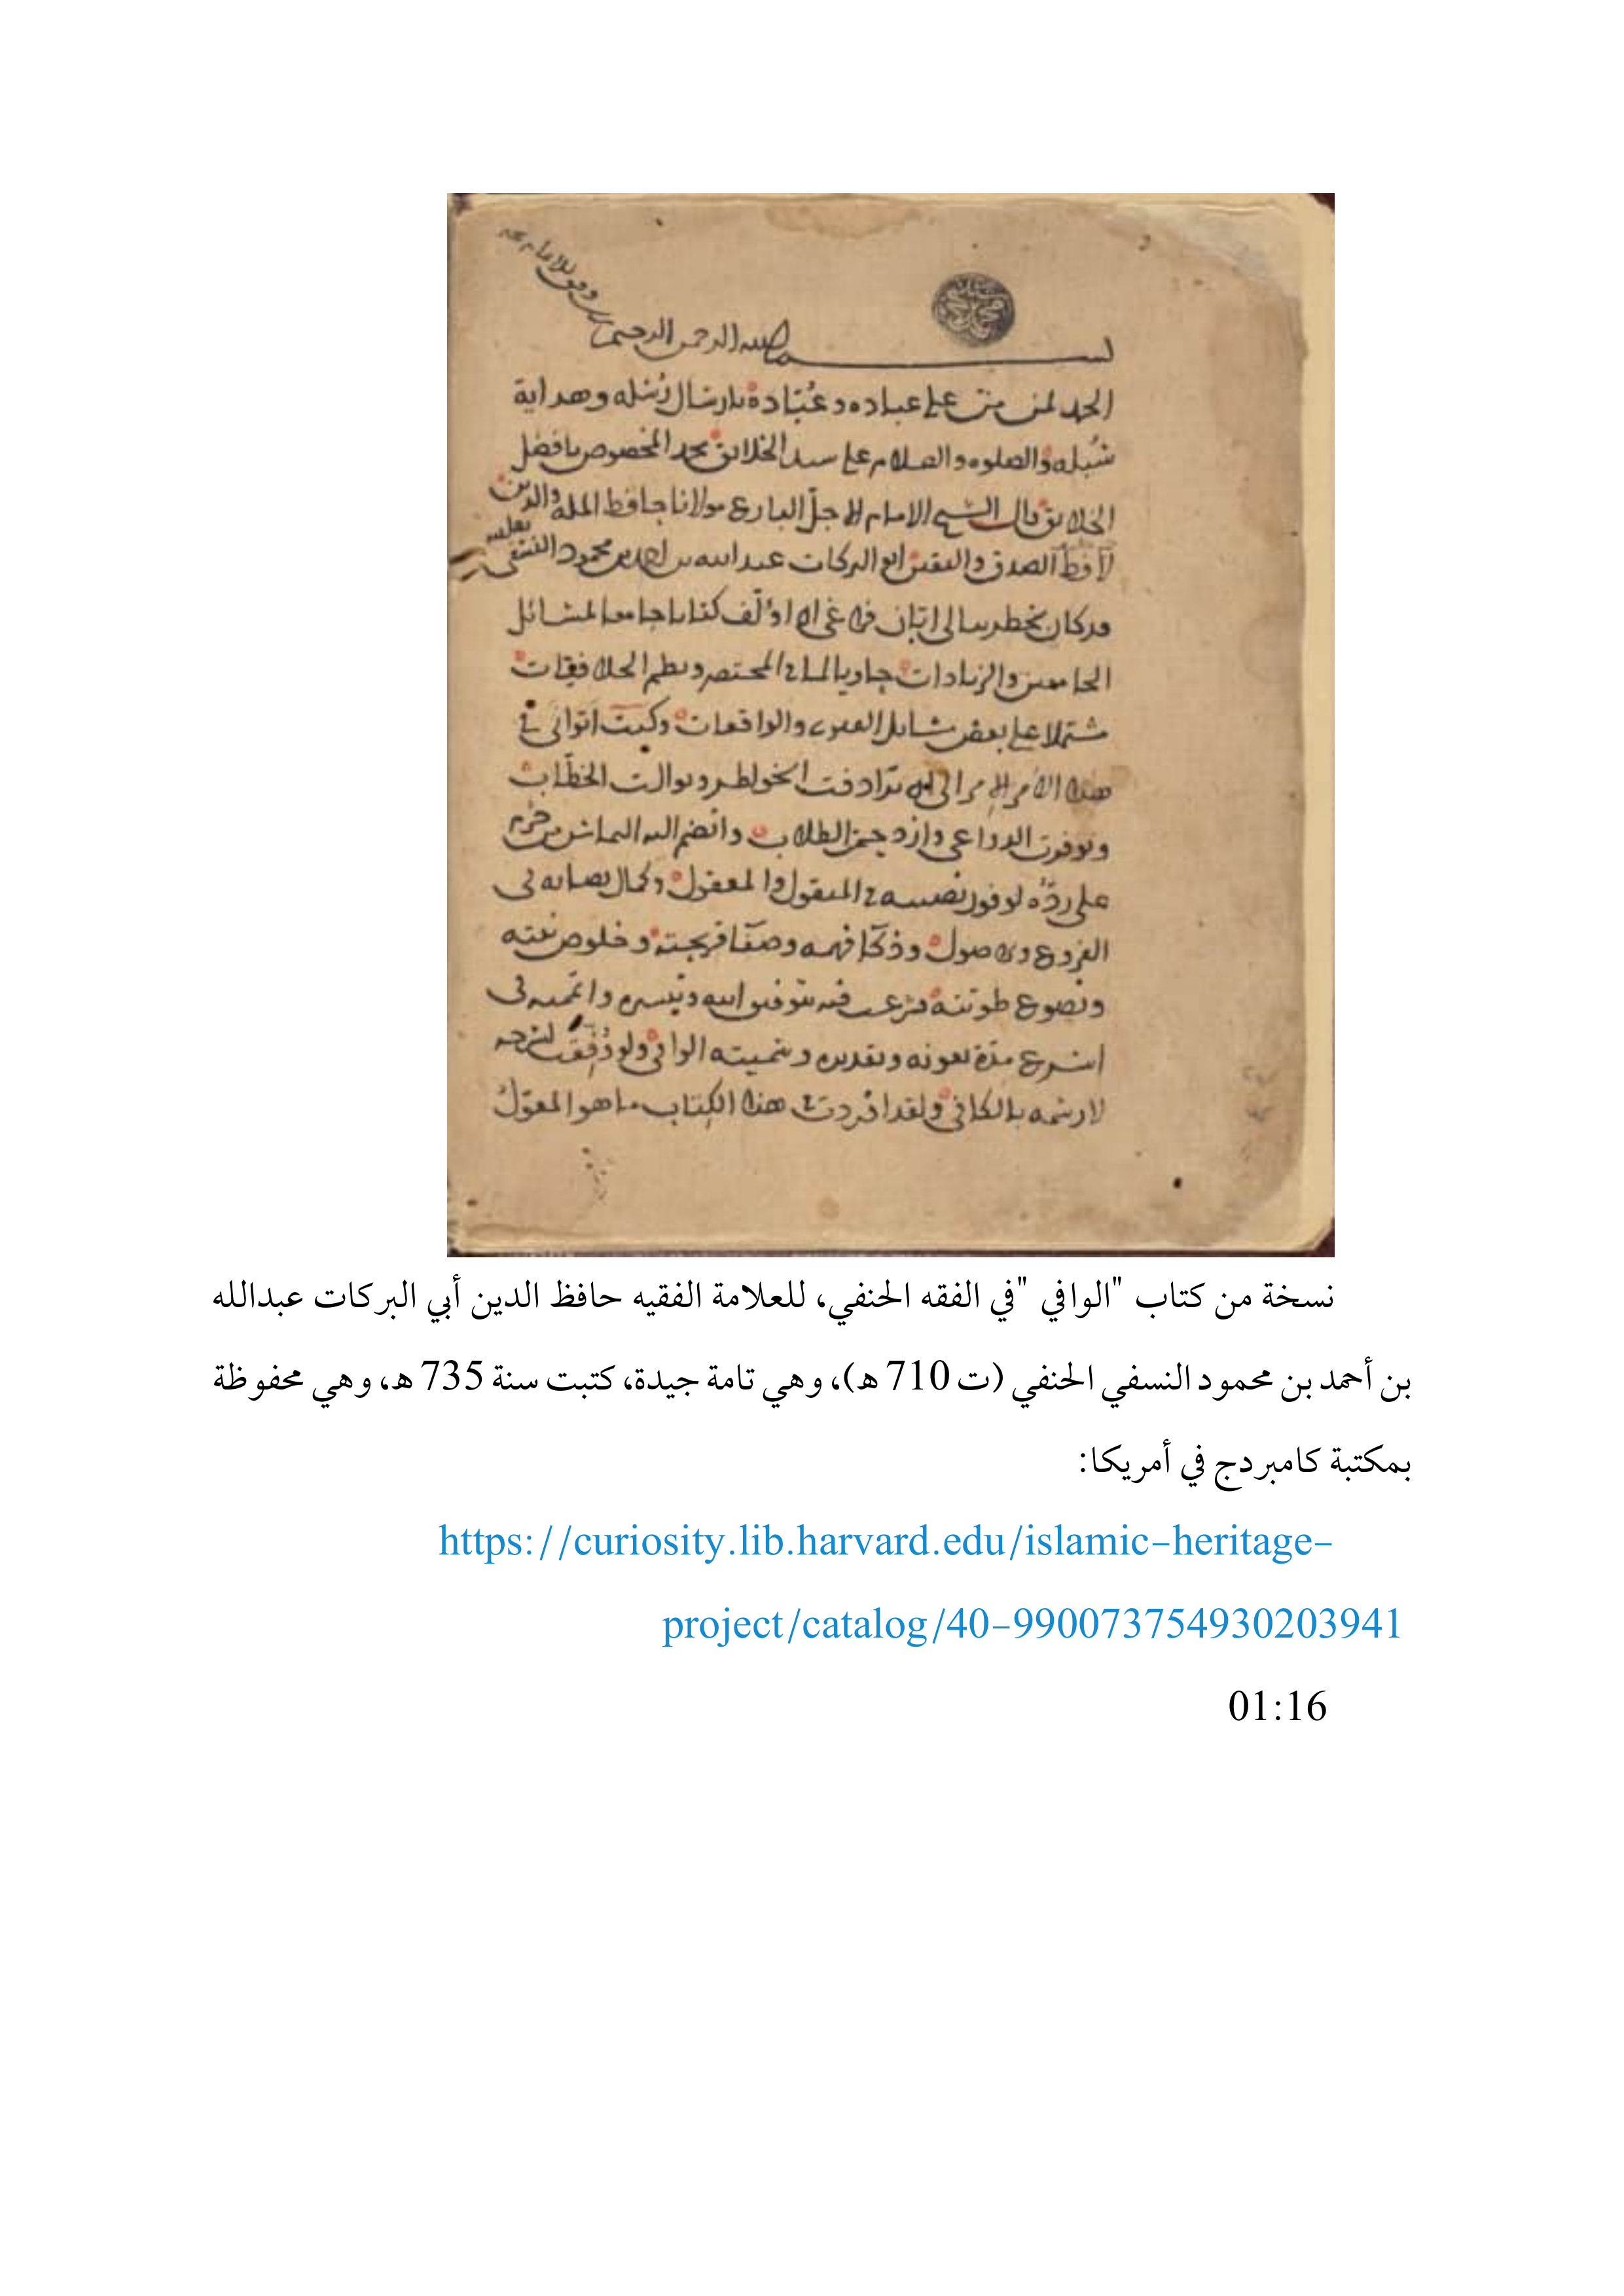 بسم الله الرحمن الرحيم رب وفق للاتمام
الحمد لمن منّ على عباده وعُبّاده بارسال رُسُله وهداية
سُبُله والصلوه والسلام على سيد الخلائق محمد المخصوص بافضل
الخلائق قال الشيخ الامام الاجلّ البارع مولانا حافظ الملة والدين
لافظ الصدق واليقين ابو البركات عبد الله بن احمد بن محمود النسفي
قد كان يخطر ببالى ابّان فراغى ان اؤلّف كتابا جامعا لمسائل
الجامعين والزيادات حاويا لما في المختصر ونظم الخلافيات
مشتملا على بعض مسائل الفتوى والواقعات وكنت اتوانى في
هذا الامر الامر الى ان ترادفت الخواطر وتوالت الخطّاب
وتوفرت الدواعى وازدحمت الطلاب وانضم اليه التماس من
على ردّه لوفور نصيبه في المنقول والمعقول وكمال نصابه فى
الفروع والاصول وذكا فهمه وصفا قريحته وخلوص
ونصوع طويته فشرعت فيه بتوفيق الله وتيسيره واتممته فى
اسرع مدة بعونه وتقديره وسميته الوافى ولو وُفِّقت لشرحه
لارسمه بالكافى ولقد اوردت في هذا الكتاب ما هو المعوّل
نسخة من كتاب "الوافي "في الفقه الحنفي، للعلامة الفقيه حافظ الدين أبي البركات عبدالله
بن أحمد بن محمود النسفي الحنفي (ت 710 هـ)، وهي تامة جيدة، كتبت سنة 735 هـ، وهي محفوظة
بمكتبة كامبردج في أمريكا:
https://curiosity.lib.harvard.edu/islamic-heritage-
project/catalog/40-990073754930203941
01:16